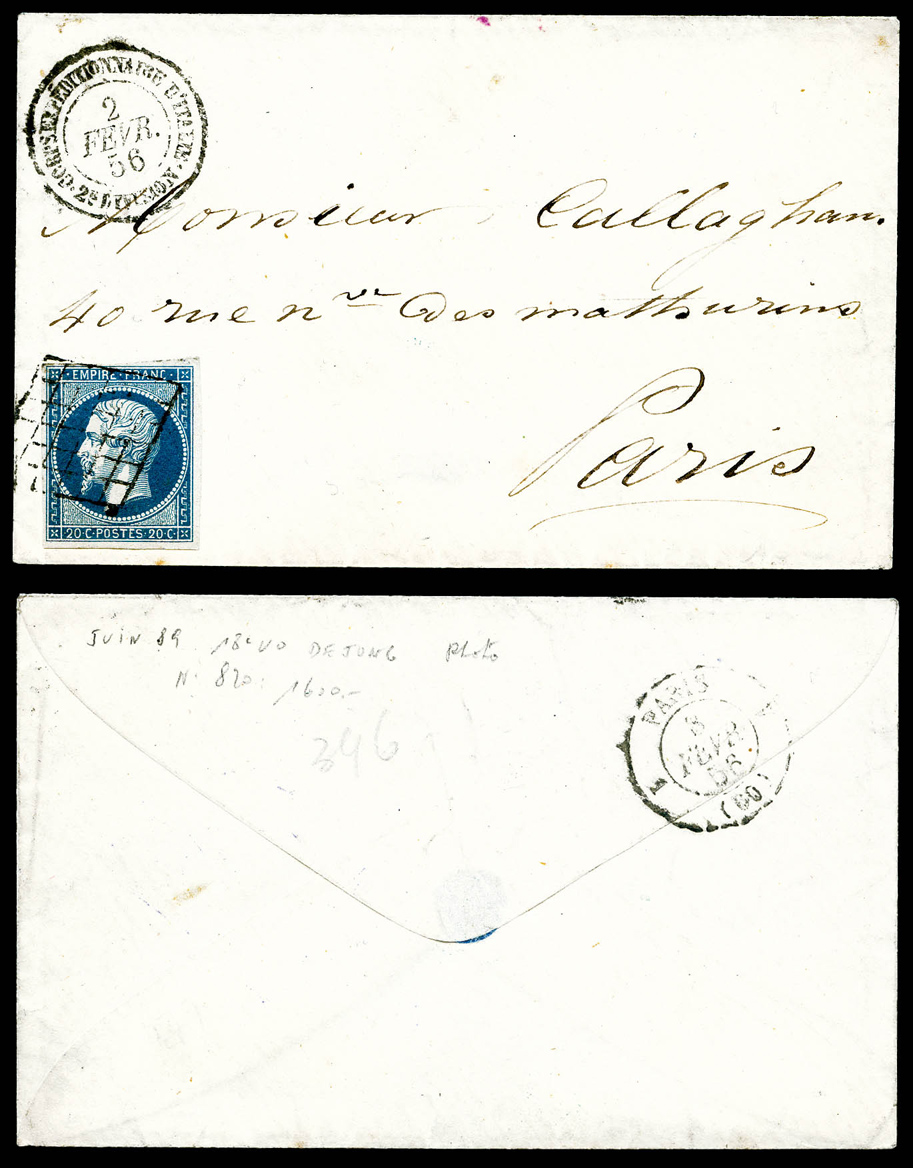 CORPS EXPÉDITIONNAIRE D'ITALIE · 2E DIVISION ·
2
FEVR.
56
Monsieur Callaghan.
40 rue nve des mathurins
Paris
· EMPIRE · FRANC ·
20 · C · POSTES · 20 · C ·
JUIN 89 18e VO DE JONG Photo
N. 820. 1600.-
396
PARIS
8
FEVR
56
(60)